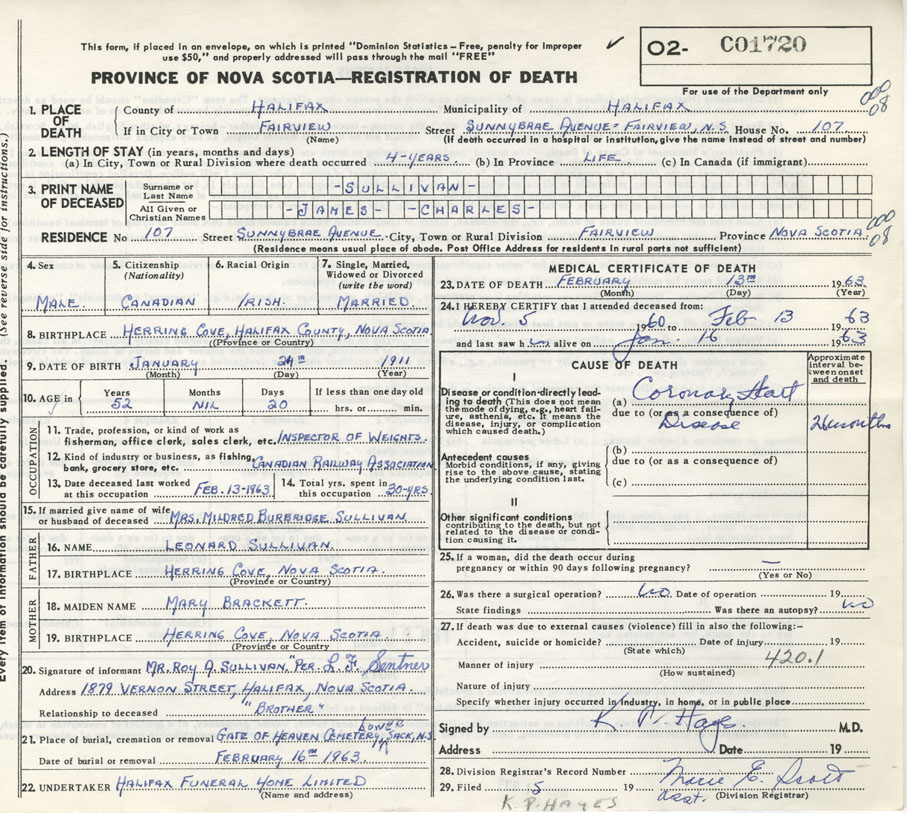 This form, if placed in an envelope, on which is printed "Dominion Statistics—Free, penalty for improper
use $50," and properly addressed will pass through the mail "FREE"
✓
O2- C01720
PROVINCE OF NOVA SCOTIA—REGISTRATION OF DEATH
For use of the Department only
000
08
1. PLACE OF DEATH County of HALIFAX Municipality of HALIFAX
If in City or Town FAIRVIEW (Name) Street SUNNYBRAE AVENUE- FAIRVIEW, N.S. House No. 107
(If death occurred in a hospital or institution, give the name instead of street and number)
2. LENGTH OF STAY (in years, months and days)
(a) In City, Town or Rural Division where death occurred 4-YEARS. (b) In Province LIFE. (c) In Canada (if immigrant)
3. PRINT NAME OF DECEASED Surname or Last Name -SULLIVAN-
All Given or Christian Names -JAMES- -CHARLES-
000
08
RESIDENCE No 107 Street SUNNYBRAE AVENUE -City, Town or Rural Division FAIRVIEW Province NOVA SCOTIA
(Residence means usual place of abode. Post Office Address for residents in rural parts not sufficient)
4. Sex MALE.
5. Citizenship (Nationality) CANADIAN
6. Racial Origin IRISH.
7. Single, Married, Widowed or Divorced (write the word) MARRIED.
8. BIRTHPLACE HERRING COVE, HALIFAX COUNTY, NOVA SCOTIA.
(Province or Country)
9. DATE OF BIRTH JANUARY 24TH 1911
(Month) (Day) (Year)
10. AGE in Years 52 Months NIL Days 20 If less than one day old hrs. or min.
OCCUPATION
11. Trade, profession, or kind of work as
fisherman, office clerk, sales clerk, etc. INSPECTOR OF WEIGHTS.
12. Kind of industry or business, as fishing,
bank, grocery store, etc. CANADIAN RAILWAY ASSOCIATION
13. Date deceased last worked at this occupation FEB.13-1963 14. Total yrs. spent in this occupation 30-YRS.
15. If married give name of wife
or husband of deceased MRS. MILDRED BURBRIDGE SULLIVAN.
FATHER
16. NAME LEONARD SULLIVAN.
17. BIRTHPLACE HERRING COVE, NOVA SCOTIA.
(Province or Country)
MOTHER
18. MAIDEN NAME MARY BRACKETT.
19. BIRTHPLACE HERRING COVE, NOVA SCOTIA.
(Province or Country)
20. Signature of informant MR. ROY A. SULLIVAN. "PER L. F. Sentner
Address 1879 VERNON STREET, HALIFAX, NOVA SCOTIA.
Relationship to deceased "BROTHER"
21. Place of burial, cremation or removal GATE OF HEAVEN CEMETERY, SACK, N.S.
Date of burial or removal FEBRUARY 16TH 1963.
22. UNDERTAKER HALIFAX FUNERAL HOME LIMITED
(Name and address)
MEDICAL CERTIFICATE OF DEATH
23. DATE OF DEATH FEBRUARY 13TH 1963
(Month) (Day) (Year)
24. I HEREBY CERTIFY that I attended deceased from:
Nov. 5 1960 to Feb 13 1963
and last saw him alive on Jan. 16 1963
CAUSE OF DEATH
Approximate interval between onset and death
I
Disease or condition directly leading to death (This does not mean the mode of dying, e.g., heart failure, asthenia, etc. It means the disease, injury, or complication which caused death.)
(a) Coronary Heart
due to (or as a consequence of)
Disease
26 months
Antecedent causes
Morbid conditions, if any, giving rise to the above cause, stating the underlying condition last.
(b)
due to (or as a consequence of)
(c)
II
Other significant conditions
contributing to the death, but not related to the disease or condition causing it.
25. If a woman, did the death occur during
pregnancy or within 90 days following pregnancy? —
(Yes or No)
26. Was there a surgical operation? No Date of operation 19
State findings Was there an autopsy? No
27. If death was due to external causes (violence) fill in also the following:—
Accident, suicide or homicide? Date of injury 19
(State which)
Manner of injury 420.1
(How sustained)
Nature of injury
Specify whether injury occurred in industry, in home, or in public place
Signed by K P Hayes M.D.
Address Date 19
28. Division Registrar's Record Number Marie E. Scott
29. Filed 5 19 asst. (Division Registrar)
K.P. HAYES
Every item of information should be carefully supplied. (See reverse side for instructions.)